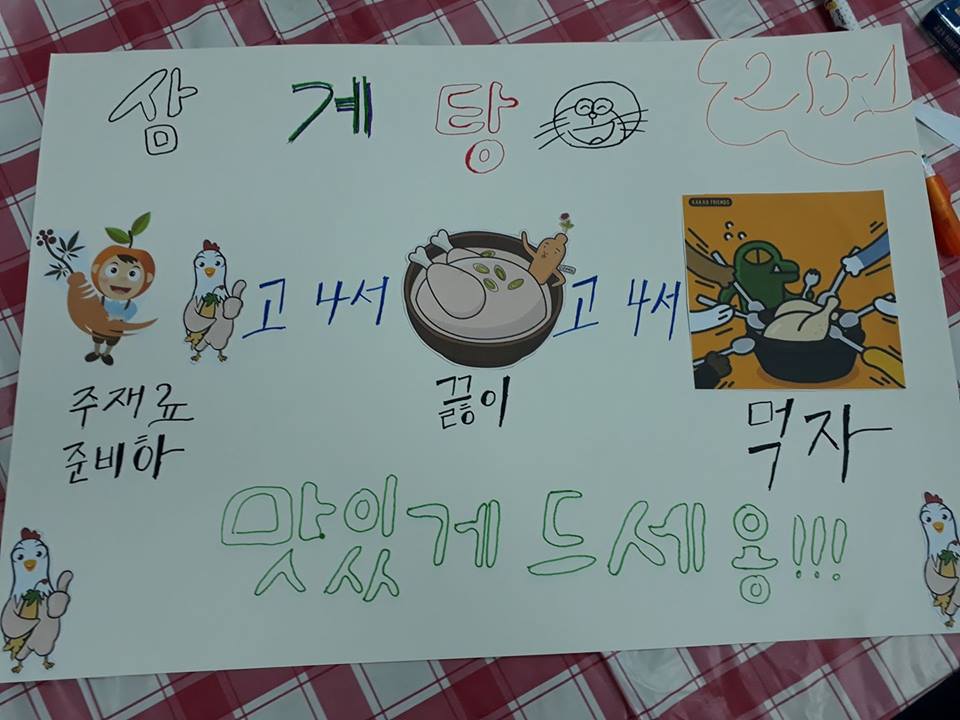 삼 게 탕
2B-1
KAKAO FRIENDS
고 4서
고 4서
주재료
준비하
끓이
먹자
맛있게 드세용!!!